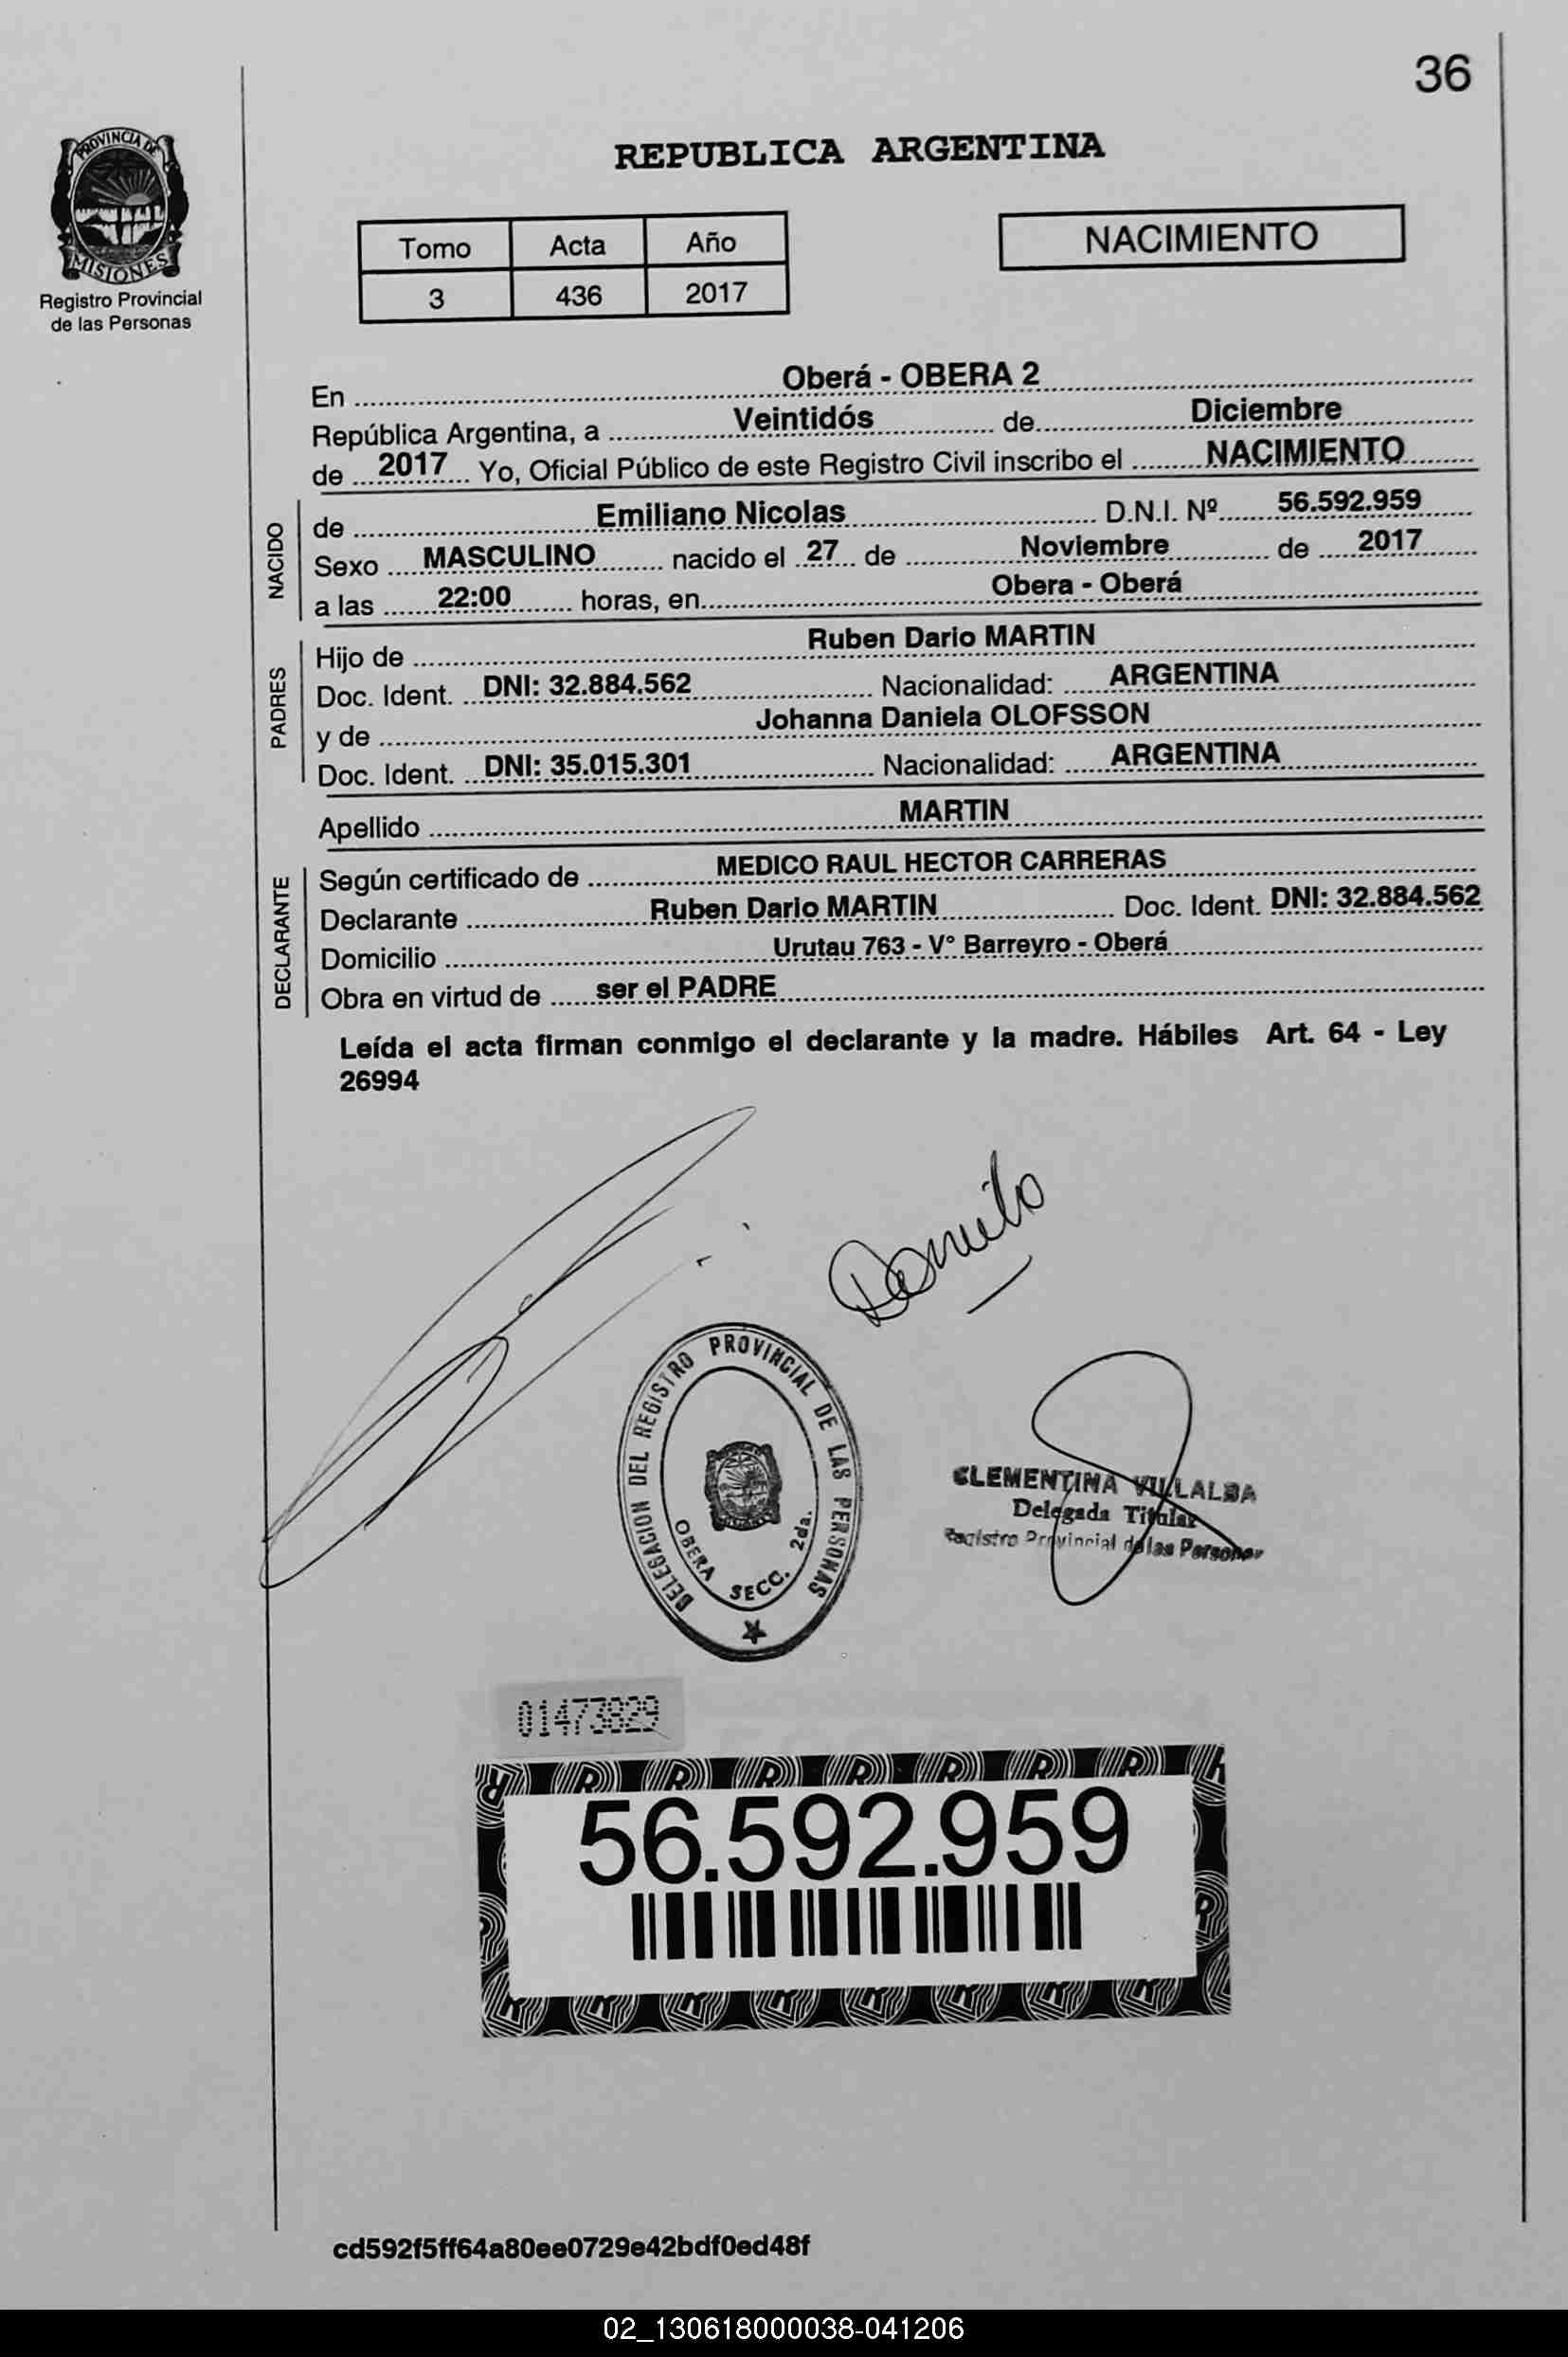 36
PROVINCIA DE
MISIONES
Registro Provincial
de las Personas
REPUBLICA ARGENTINA
Tomo Acta Año
3 436 2017
NACIMIENTO
En Oberá - OBERA 2
República Argentina, a Veintidós de Diciembre
de 2017 Yo, Oficial Público de este Registro Civil inscribo el NACIMIENTO
NACIDO
de Emiliano Nicolas D.N.I. Nº 56.592.959
Sexo MASCULINO nacido el 27 de Noviembre de 2017
a las 22:00 horas, en Obera - Oberá
PADRES
Hijo de Ruben Dario MARTIN
Doc. Ident. DNI: 32.884.562 Nacionalidad: ARGENTINA
y de Johanna Daniela OLOFSSON
Doc. Ident. DNI: 35.015.301 Nacionalidad: ARGENTINA
Apellido MARTIN
DECLARANTE
Según certificado de MEDICO RAUL HECTOR CARRERAS
Declarante Ruben Dario MARTIN Doc. Ident. DNI: 32.884.562
Domicilio Urutau 763 - V° Barreyro - Oberá
Obra en virtud de ser el PADRE
Leída el acta firman conmigo el declarante y la madre. Hábiles Art. 64 - Ley
26994
DELEGACION DEL REGISTRO PROVINCIAL DE LAS PERSONAS
OBERA SECC. 2da.
CLEMENTINA VILLALBA
Delegada Titular
Registro Provincial de las Personas
01473829
56.592.959
cd592f5ff64a80ee0729e42bdf0ed48f
02_130618000038-041206